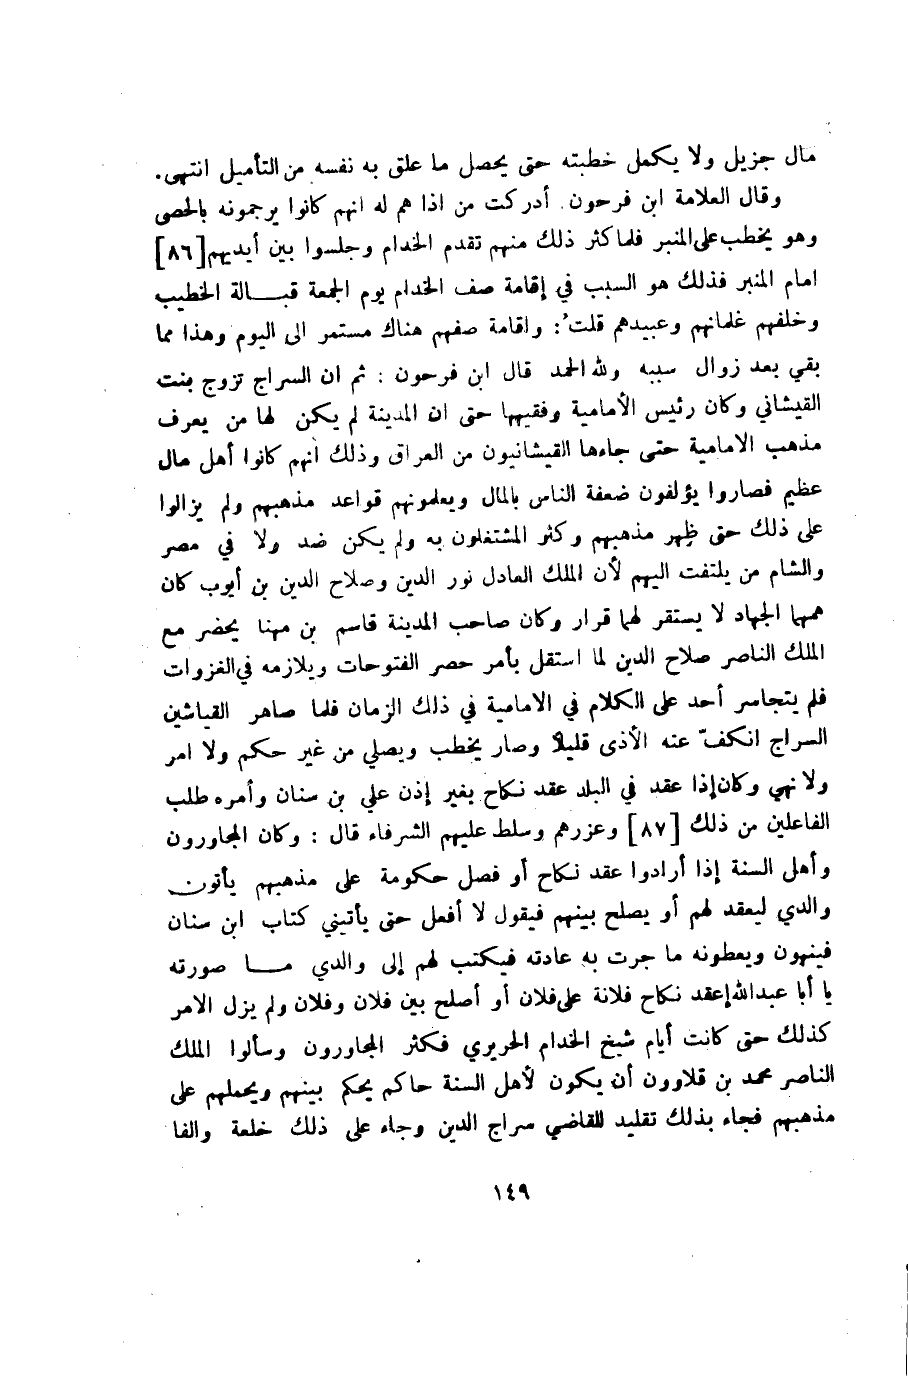 مال جزيل ولا يكمل خطبته حتى يحصل ما علق به نفسه من التأميل انتهى.
وقال العلامة ابن فرحون. أدركت من اذا هم له انهم كانوا يرجمونه بالحصى
وهو يخطب على المنبر فلما كثر ذلك منهم تقدم الخدام وجلسوا بين أيديهم [٨٦]
امام المنبر فذلك هو السبب في إقامة صف الخدام يوم الجمعة قبالة الخطيب
وخلفهم غلمانهم وعبيدهم قلت: واقامة صفهم هناك مستمر الى اليوم وهذا مما
بقي بعد زوال سببه ولله الحمد قال ابن فرحون : ثم ان السراج تزوج بنت
القيشاني وكان رئيس الأمامية وفقيهها حتى ان المدينة لم يكن لها من يعرف
مذهب الامامية حتى جاءها القيشانيون من العراق وذلك أنهم كانوا أهل مال
عظيم فصاروا يؤلفون ضعفة الناس بالمال ويعلمونهم قواعد مذهبهم ولم يزالوا
على ذلك حتى ظهر مذهبهم وكثر المشتغلون به ولم يكن ضد ولا في مصر
والشام من يلتفت اليهم لأن الملك العادل نور الدين وصلاح الدين بن أيوب كان
همها الجهاد لا يستقر لهما قرار وكان صاحب المدينة قاسم بن مهنا يحضر مع
الملك الناصر صلاح الدين لما استقل بأمر حصر الفتوحات ويلازمه في الغزوات
فلم يتجاسر أحد على الكلام في الامامية في ذلك الزمان فلما صاهر القياشين
السراج انكفّ عنه الأذى قليلاً وصار يخطب ويصلي من غير حكم ولا امر
ولا نهي وكان إذا عقد في البلد عقد نكاح بغير إذن علي بن سنان وأمره طلب
الفاعلين من ذلك [٨٧] وعزرهم وسلط عليهم الشرفاء قال : وكان المجاورون
وأهل السنة إذا أرادوا عقد نكاح أو فصل حكومة على مذهبهم يأتون
والدي ليعقد لهم أو يصلح بينهم فيقول لا أفعل حتى يأتيني كتاب ابن سنان
فينهون ويعطونه ما جرت به عادته فيكتب لهم إلى والدي ما صورته
يا أبا عبدالله إعقد نكاح فلانة على فلان أو أصلح بين فلان وفلان ولم يزل الامر
كذلك حتى كانت أيام شيخ الخدام الحريري فكثر المجاورون وسألوا الملك
الناصر محمد بن قلاوون أن يكون لأهل السنة حاكم يحكم بينهم ويحملهم على
مذهبهم فجاء بذلك تقليد للقاضي سراج الدين وجاء على ذلك خلعة والفا
١٤٩